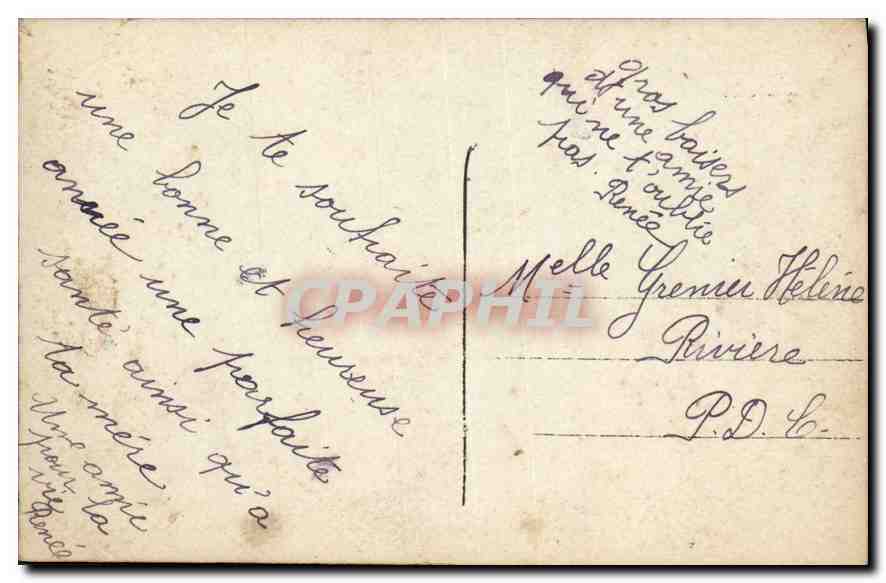 Je te souhaite
une bonne et heureuse
année une parfaite
santé ainsi qu'a
ta mère
Une amie
pour la
vie
Renée
gros baisers
d'une amie
qui ne t'oublie
pas. Renée
Melle Grenier Hélène
Rivière
P.D.C.
CPAPHIL